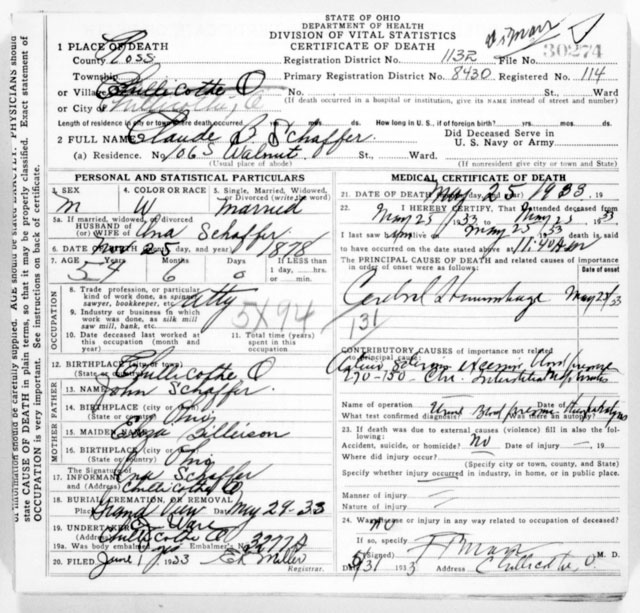 STATE OF OHIO
DEPARTMENT OF HEALTH
DIVISION OF VITAL STATISTICS
CERTIFICATE OF DEATH
1 PLACE OF DEATH
County Ross Registration District No. 1132 File No. 30274
Township Primary Registration District No. 8430 Registered No. 114
or Village Chillicothe O No. St., Ward
or City of Chillicothe, O (If death occurred in a hospital or institution, give its NAME instead of street and number)
Length of residence in city or town where death occurred yrs. mos. ds. How long in U. S., if of foreign birth? yrs. mos. ds.
2 FULL NAME Claude B Schaffer Did Deceased Serve in U. S. Navy or Army
(a) Residence. No. 106 S Walnut St., Ward.
(Usual place of abode) (If nonresident give city or town and State)
PERSONAL AND STATISTICAL PARTICULARS
3. SEX M
4. COLOR OR RACE W
5. Single, Married, Widowed, or Divorced (write the word) Married
5a. If married, widowed, or divorced
HUSBAND of
(or) WIFE of Ona Schaffer
6. DATE OF BIRTH (month, day, and year) Nov 25 1878
7. AGE Years 54 Months 6 Days 0 If LESS than 1 day, hrs. or min.
OCCUPATION
8. Trade, profession, or particular kind of work done, as spinner, sawyer, bookkeeper, etc.
9. Industry or business in which work was done, as silk mill saw mill, bank, etc. 5X94
10. Date deceased last worked at this occupation (month and year)
11. Total time (years) spent in this occupation
12. BIRTHPLACE (city or town) Chillicothe O
(State or country)
FATHER
13. NAME John Schaffer
14. BIRTHPLACE (city or town) Ohio
(State or country)
MOTHER
15. MAIDEN NAME
16. BIRTHPLACE (city or town) Ohio
(State or country)
17. The Signature of INFORMANT Ona Schaffer
and (Address) Chillicothe O
18. BURIAL, CREMATION, OR REMOVAL
Place Grand View Date May 29-33
19. UNDERTAKER Ware
(Address) Chillicothe O
19a. Was body embalmed Embalmer's No. 3277A
20. FILED June 1 1933 Miller Registrar.
MEDICAL CERTIFICATE OF DEATH
21. DATE OF DEATH (month, day and year) May 25 1933, 19
22. I HEREBY CERTIFY, That I attended deceased from
May 25 1933 to May 25 1933
I last saw him alive on May 25 1933 death is said
to have occurred on the date stated above at 11:40 m
The PRINCIPAL CAUSE OF DEATH and related causes of importance in order of onset were as follows: Date of onset
Cerebral Hemorrhage May 25/33
131
CONTRIBUTORY CAUSES of importance not related to principal cause:
Name of operation Date of
What test confirmed diagnosis? Was there an autopsy? no
23. If death was due to external causes (violence) fill in also the following:
Accident, suicide, or homicide? No Date of injury , 19
Where did injury occur?
(Specify city or town, county, and State)
Specify whether injury occurred in industry, in home, or in public place.
Manner of injury
Nature of injury
24. Was disease or injury in any way related to occupation of deceased? No
If so, specify
(Signed) M. D.
5/31 1933 Address Chillicothe, O.